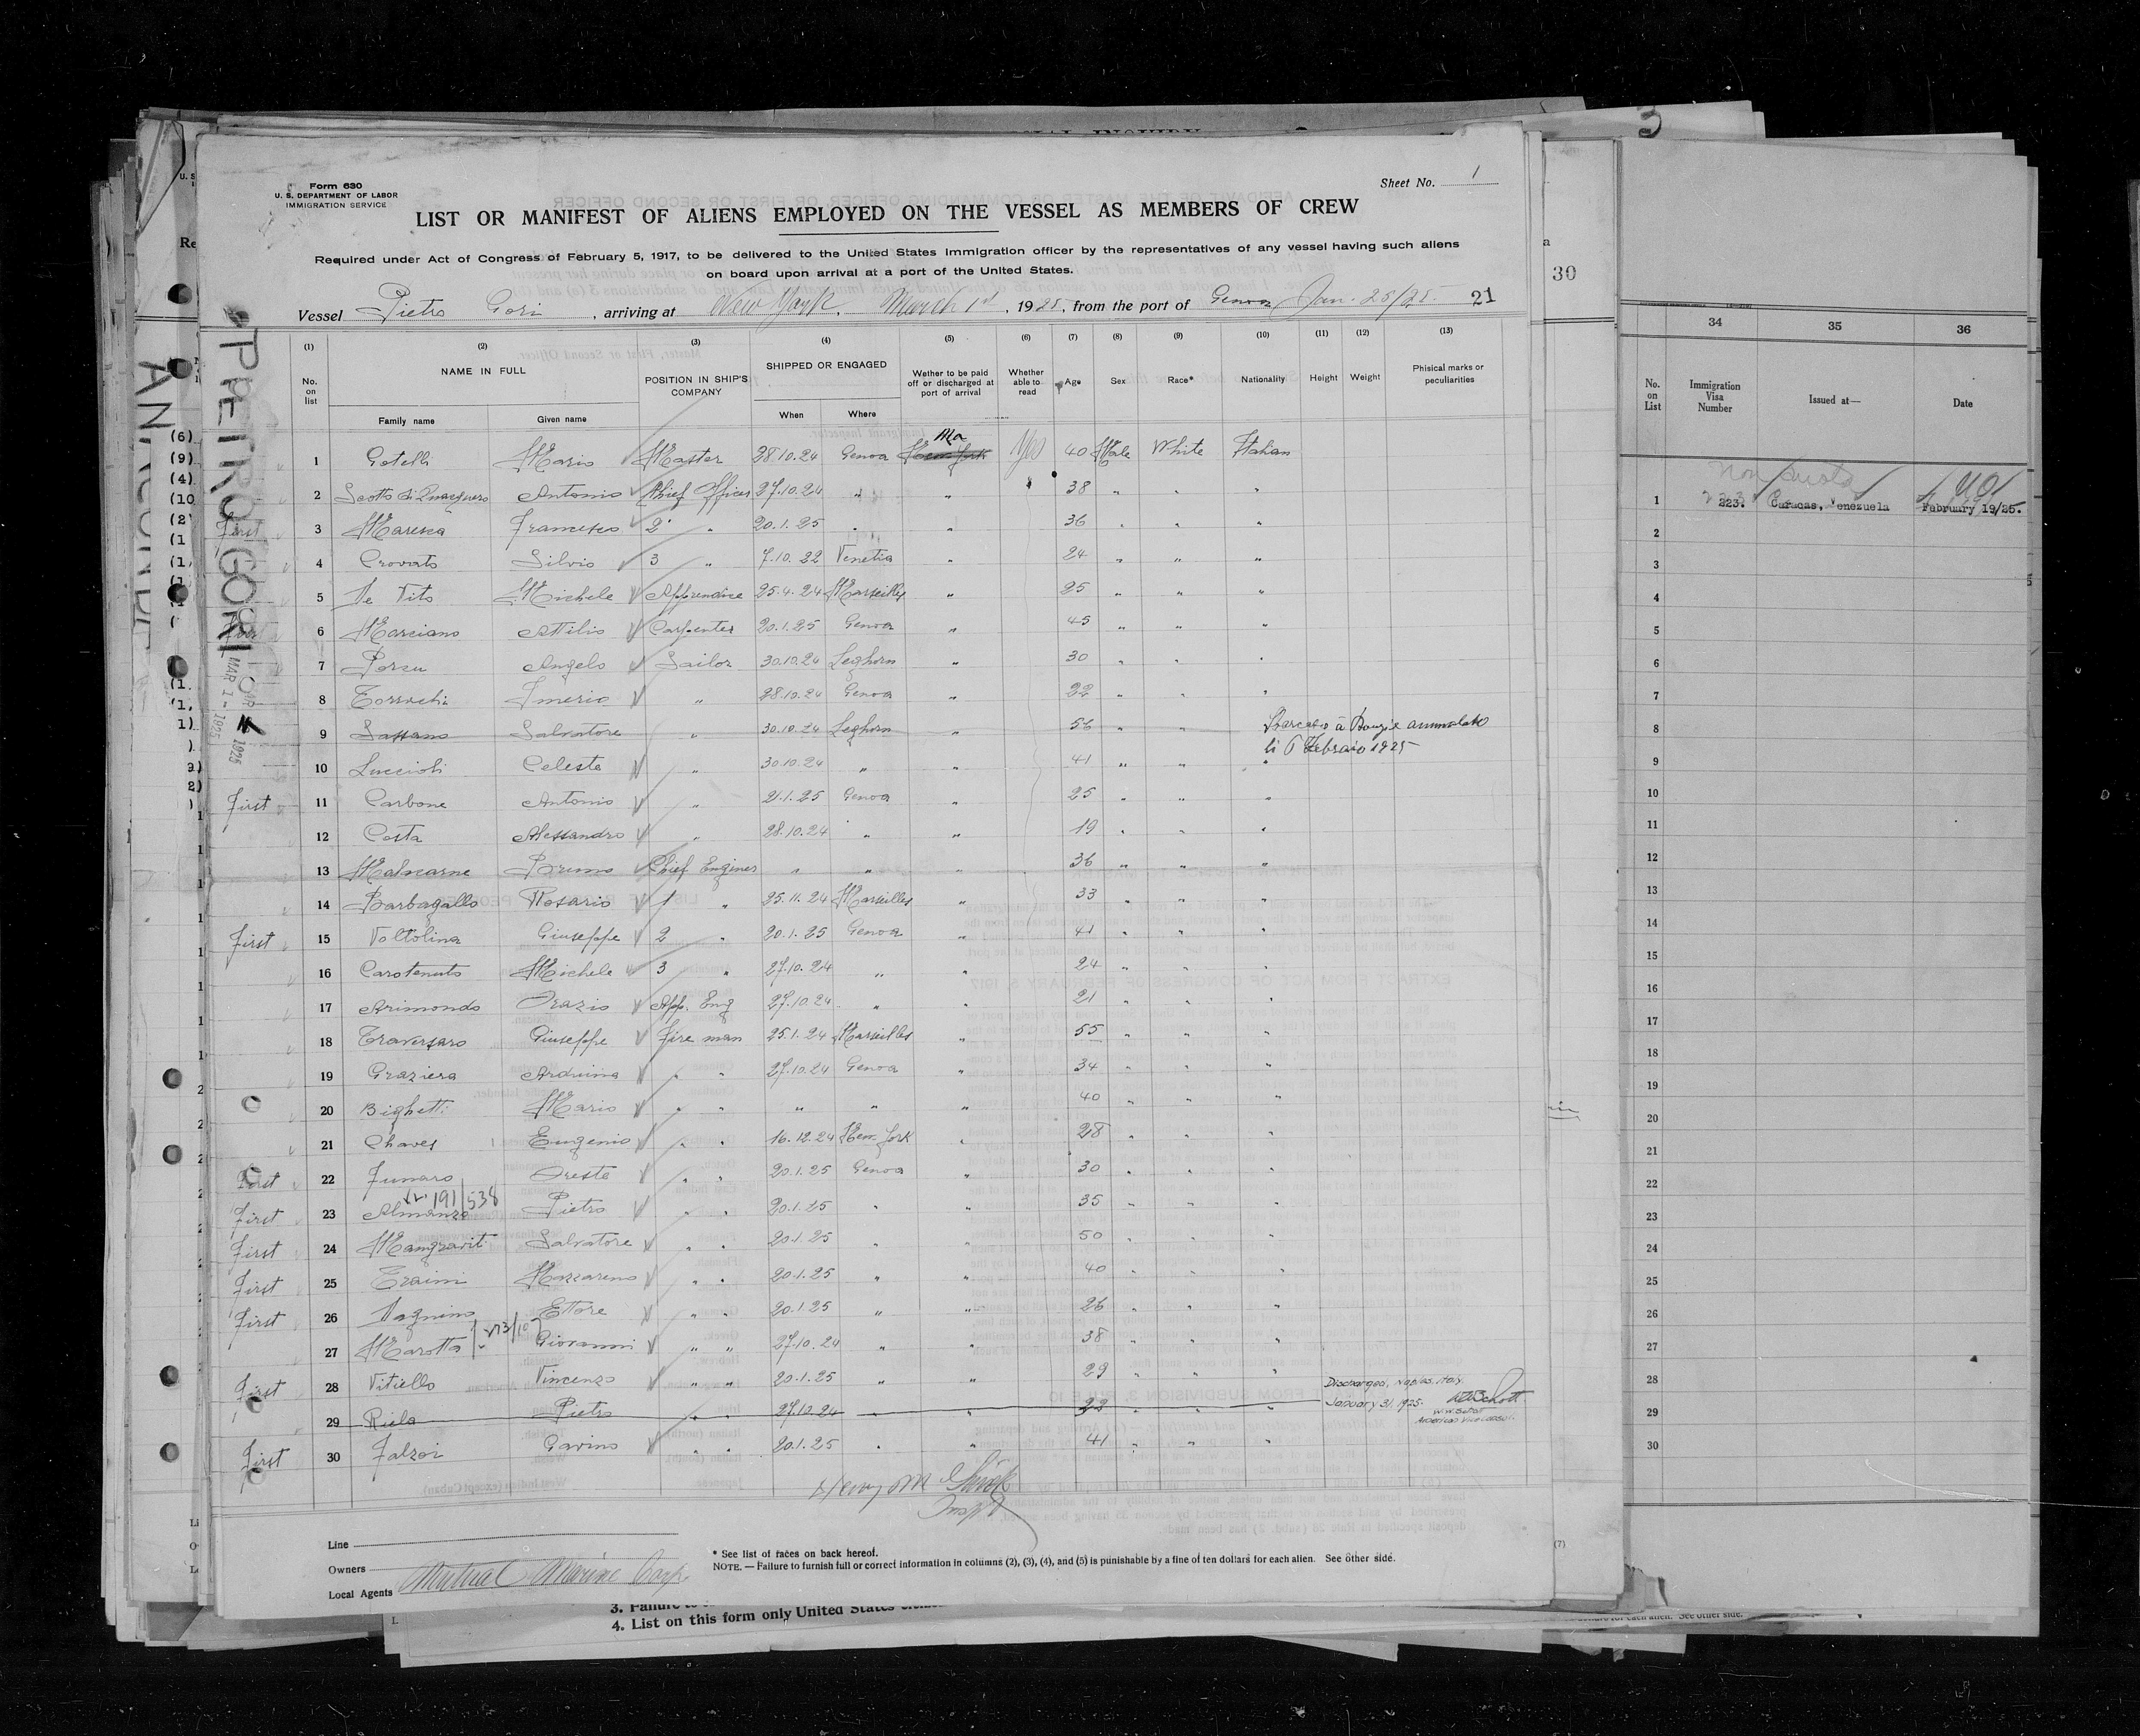 Form 630
U. S. DEPARTMENT OF LABOR
IMMIGRATION SERVICE
Sheet No. 1
LIST OR MANIFEST OF ALIENS EMPLOYED ON THE VESSEL AS MEMBERS OF CREW
Required under Act of Congress of February 5, 1917, to be delivered to the United States Immigration officer by the representatives of any vessel having such aliens
on board upon arrival at a port of the United States.
Vessel Pietro Gori, arriving at New York, March 1st, 1925, from the port of Genoa Jan. 25/25. 21
(1) (2) (3) (4) (5) (6) (7) (8) (9) (10) (11) (12) (13)
No. on list NAME IN FULL POSITION IN SHIP'S COMPANY SHIPPED OR ENGAGED Wether to be paid off or discharged at port of arrival Whether able to read Age Sex Race* Nationality Height Weight Phisical marks or peculiarities
Family name Given name When Where
1 Gotelli Mario Master 28.10.24 Genoa New York Yes 40 Male White Italian
2 Antonio Chief Officer 27.10.24 " " 38 " " "
First 3 Maresca Francesco 2 " 20.1.25 " " 36 " " "
4 Crovato Silvio 3 " 7.10.22 Venetia " 24 " " "
5 De Vito Michele Apprendice 25.4.24 Marseilles " 25 " " "
6 Marciano Attilio Carpenter 20.1.25 Genoa " 45 " " "
7 Angelo Sailor 30.10.24 Leghorn " 30 " " "
8 Imerio " 28.10.24 Genoa " 22 " " "
9 Sassano Salvatore " 30.10.24 Leghorn " 56 " " Sbarcato à Bougie ammalato
li 6 Febraio 1925
10 Luccioli Celeste " 30.10.24 " " 41 " " "
First 11 Carbone Antonio " 21.1.25 Genoa " 25 " " "
12 Costa Alessandro " 28.10.24 " " 19 " " "
13 Malvarne Bruno Chief Engineer " " " 36 " " "
14 Barbagallo Rosario 1 " 25.11.24 Marseilles " 33 " " "
First 15 Voltolina Giuseppe 2 " 20.1.25 Genoa " 41 " " "
16 Carotenuto Michele 3 " 27.10.24 " " 24 " " "
17 Arimondo Orazio App. Eng 27.10.24 " " 21 " " "
18 Traversaro Giuseppe Fire man 25.1.24 Marseilles " 55 " " "
19 Graziera Arduina " " 27.10.24 Genoa " 34 " " "
20 Bighetti Mario " " " " " 40 " " "
21 Chaves Eugenio " " 16.12.24 New York " 28 " " "
First 22 Funaro Oreste " " 20.1.25 Genoa " 30 " " "
191/538
First 23 Almanzo Pietro " " 20.1.25 " " 35 " " "
First 24 Mangraviti Salvatore " " 20.1.25 " " 50 " " "
First 25 Traini Nazzareno " " 20.1.25 " " 40 " " "
First 26 Dagnino Ettore " " 20.1.25 " " 26 " " "
27 Marotta Giovanni " " 27.10.24 " " 38 " " "
First 28 Vitiello Vincenzo " " 20.1.25 " " 29 " " "
Discharged, Naples, Italy.
January 31, 1925.
American Vice Consul.
29 Riela Pietro " " 27.10.24 " " 22 " " "
First 30 Falzoi Gavino " " 20.1.25 " " 41 " " "
Henry M
Insp
Line
Owners
Local Agents Mutual Marine Corp.
* See list of races on back hereof.
NOTE. — Failure to furnish full or correct information in columns (2), (3), (4), and (5) is punishable by a fine of ten dollars for each alien. See other side.
4. List on this form only United States
PIETRO GORI
MAR 1 - 1925
30
34 35 36
No. on List Immigration Visa Number Issued at— Date
Non quota
1 223. Caracas, Venezuela February 19/25.
2
3
4
5
6
7
8
9
10
11
12
13
14
15
16
17
18
19
20
21
22
23
24
25
26
27
28
29
30